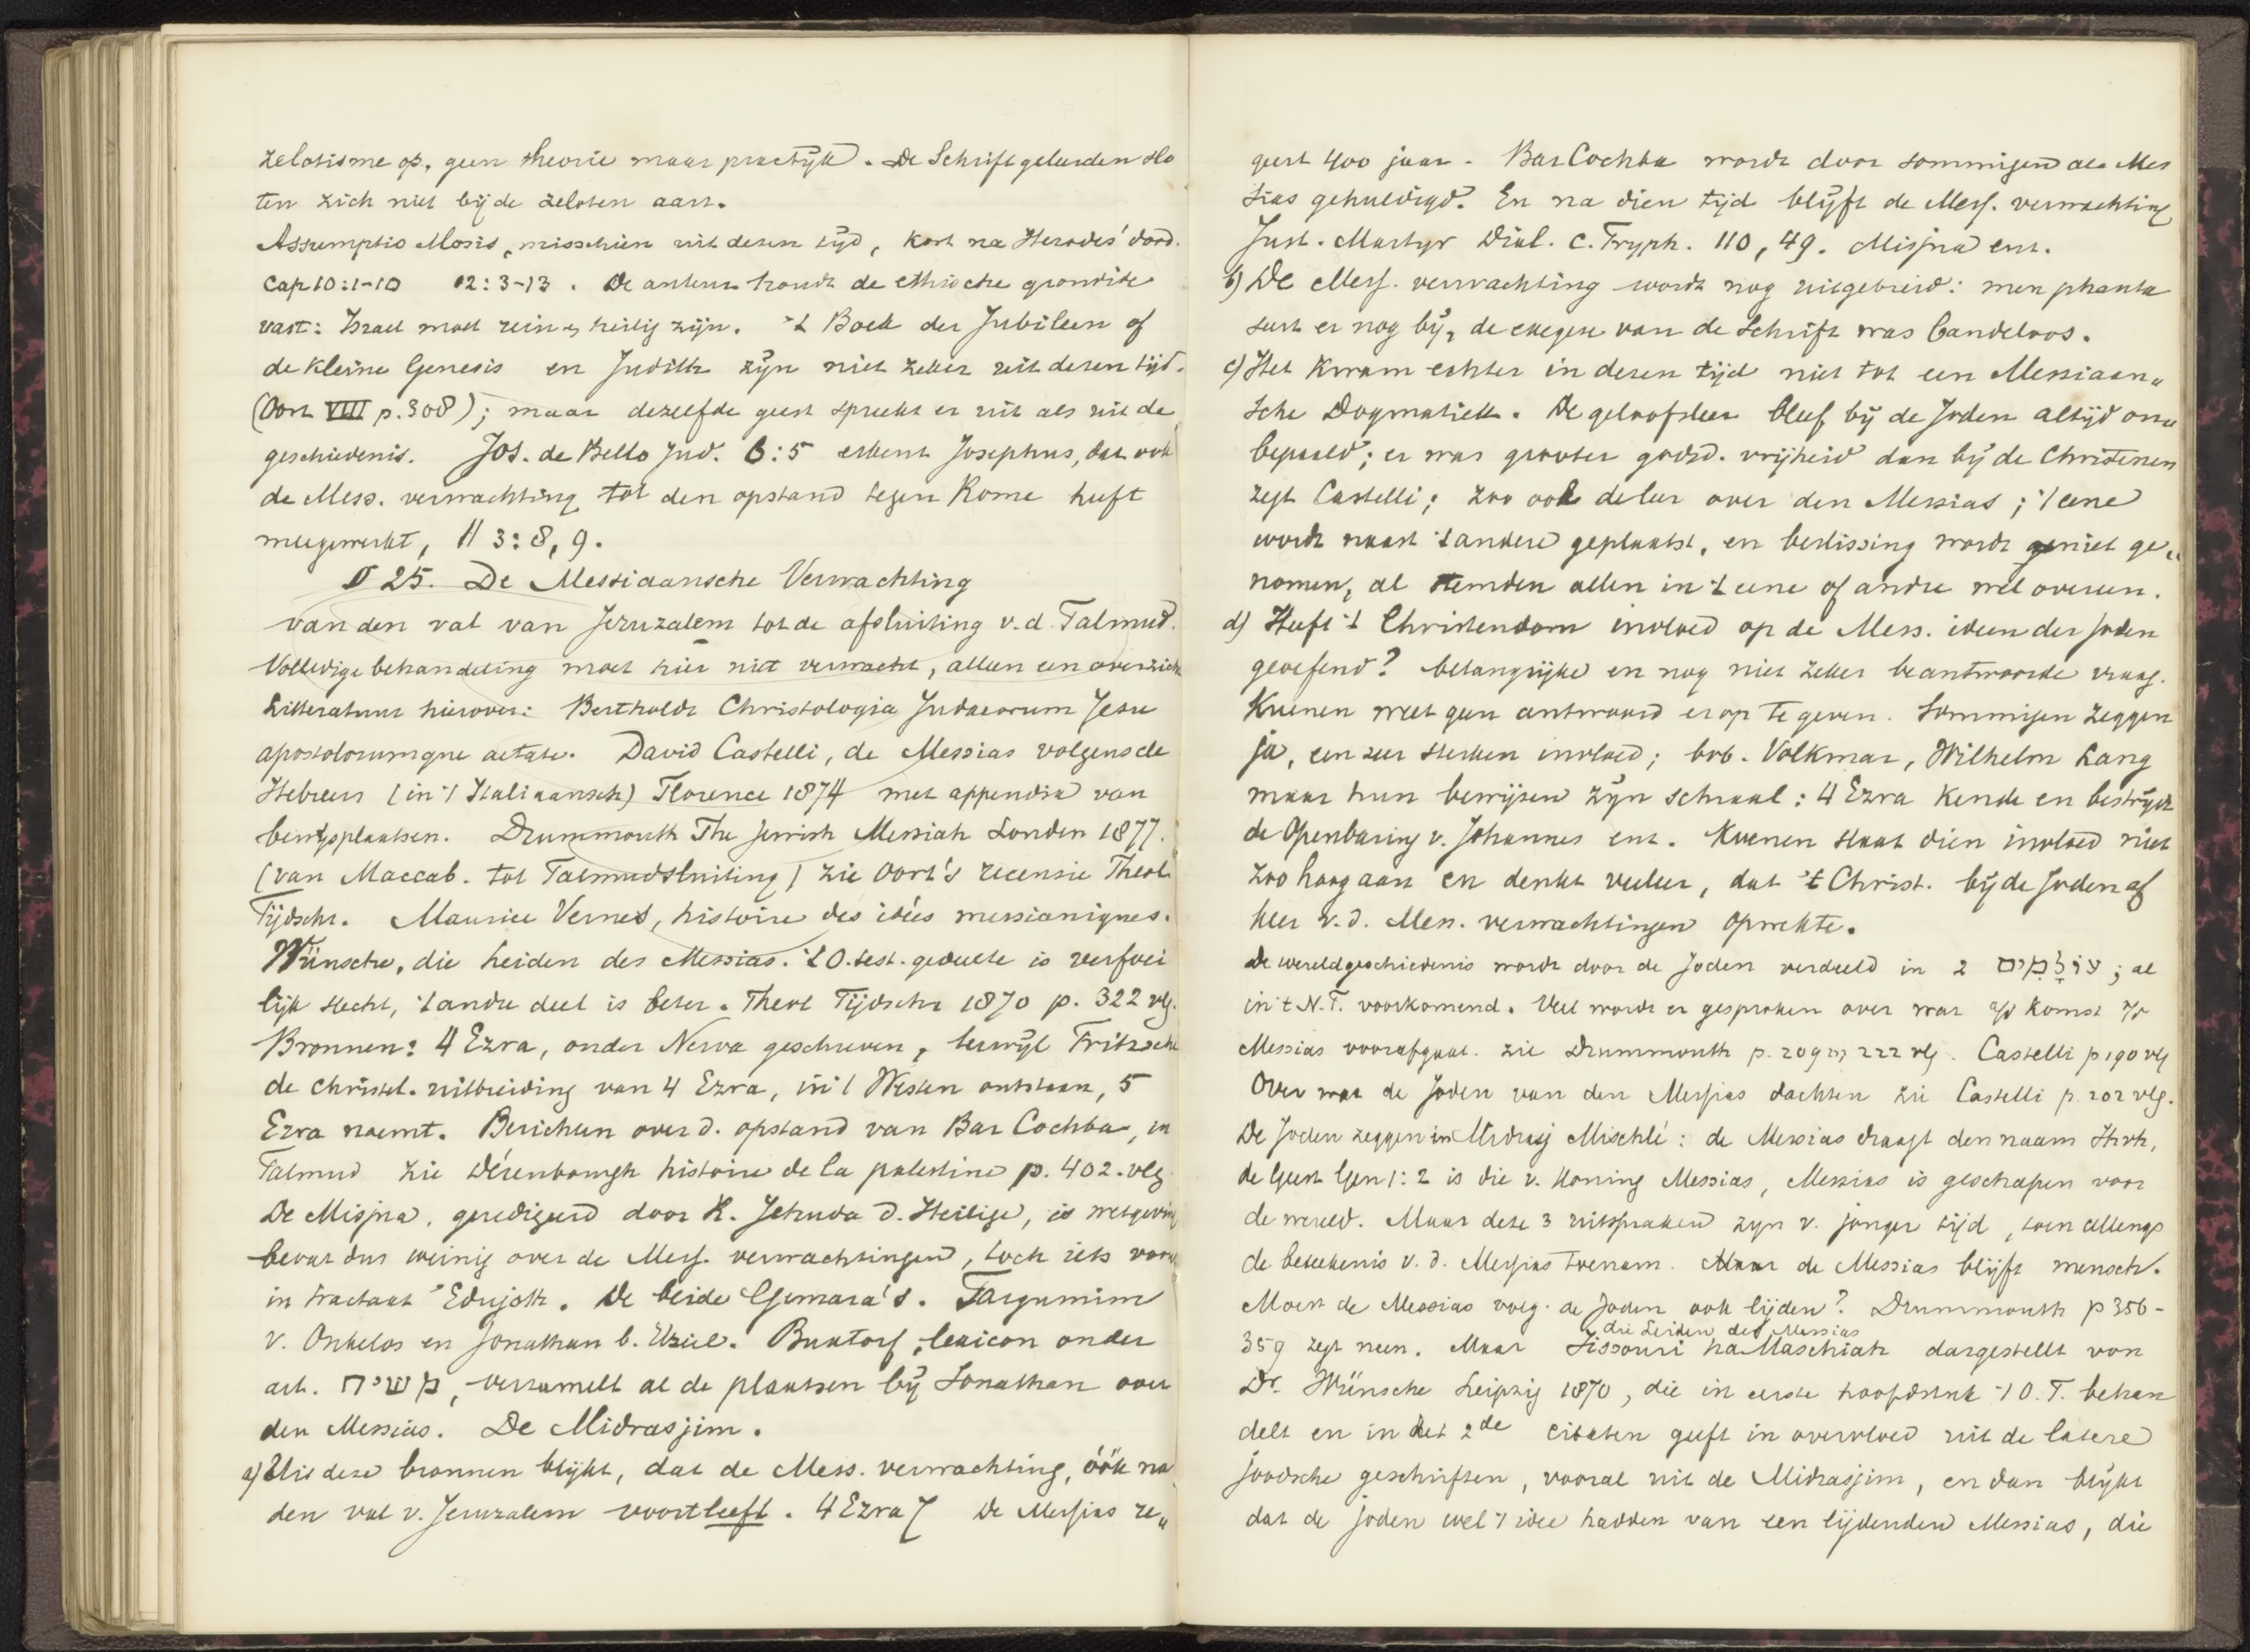 zelotisme op, geen theorie maar practijk. De Schriftgeleerden slo
ten zich niet bij de zeloten aan.
Assumptio Mosis, misschien uit dezen tijd, kort na Herodes' dood.
Cap 10:1-10 12:3-13. De auteur houdt de ethische grondidee
vast: Israel moet rein en heilig zijn. 't Boek der Jubileen of
de kleine Genesis en Judith zijn niet zeker uit dezen tijd.
(Oort VIII p. 308); maar dezelfde geest spreekt er uit als uit de
geschiedenis. Jos. de Bello Jud. 6:5 erkent Josephus, dat ook
de Mess. verwachting tot den opstand tegen Rome heeft
meegewerkt, II 3:8, 9.
§ 25. De Messiaansche Verwachting
van den val van Jeruzalem tot de afsluiting v.d. Talmud.
Volledige behandeling moet hier niet verwacht, alleen een overzicht
Litteratuur hierover: Bertholdt Christologia Judaeorum Jesu
apostolorumque aetate. David Castelli, de Messias volgens de
Hebreen (in 't Italiaansch) Florence 1874 met appendix van
bewijsplaatsen. Drummouth The Jewish Messiah London 1877.
(van Maccab. tot Talmudsluiting) zie Oort's recensie Theol.
Tijdschr. Maurice Vernes, histoire des idées messianiques.
Wünsche, die Leiden des Messias. 't O.test. gedeelte is verfoei
lijk slecht, 't andre deel is beter. Theol Tijdschr 1870 p. 322 vlg.
Bronnen: 4 Ezra, onder Nerva geschreven, terwijl Fritzsche
de christel. uitbreiding van 4 Ezra, in 't Westen ontstaan, 5
Ezra noemt. Berichten over d. opstand van Bar Cochba, in
Talmud zie Dérenbourgh histoire de la palestine p. 402. vlg
De Misjna, geredigeerd door R. Jehuda d. Heilige, is wetgeving
bevat dus weinig over de Mess. verwachtingen, toch iets voor
in tractaat Edujoth. De beide Gemara's. Targumim
v. Onkelos en Jonathan b. Uziel. Buxtorf, lexicon onder
art. משיח, verzamelt al de plaatsen bij Jonathan over
den Messias. De Midrasjim.
a) Uit deze bronnen blijkt, dat de Mess. verwachting, óók na
den val v. Jeruzalem voortleeft. 4 Ezra 7 De Messias re„
geert 400 jaar. Bar Cochba wordt door sommigen als Mes
sias gehuldigd. En na dien tijd blijft de Mess. verwachting
Just. Martyr Dial. c. Tryph. 110, 49. Misjna enz.
b) De Mess. verwachting wordt nog uitgebreid: men phanta
seert er nog bij, de exegese van de Schrift was bandeloos.
c) Het kwam echter in dezen tijd niet tot een Messiaan„
sche Dogmatiek. De geloofsleer bleef bij de Joden altijd on„
bepaald; er was grooter godsd. vrijheid dan bij de Christenen
zegt Castelli; zoo ook de leer over den Messias; 't eene
wordt naast 't andere geplaatst, en beslissing wordt niet ge„
nomen, al stemden allen in 't eene of andre wel overeen.
d) Heeft 't Christendom invloed op de Mess. ideen der Joden
geoefend? belangrijke en nog niet zeker beantwoorde vraag.
Kuenen weet geen antwoord erop te geven. Sommigen zeggen
ja, een zeer sterken invloed; bvb. Volkmar, Wilhelm Lang
maar hun bewijzen zijn schraal: 4 Ezra kende en bestrijdt
de Openbaring v. Johannes enz. Kuenen slaat dien invloed niet
zoo hoog aan en denkt veeleer, dat 't Christ. bij de Joden af
keer v.d. Mess. verwachtingen opwekte.
De wereldgeschiedenis wordt door de Joden verdeeld in 2 עולמים; al
in 't N.T. voorkomend. Veel wordt er gesproken over wat a/d komst v/d
Messias voorafgaat. zie Drummouth p. 209 en 222 vlg. Castelli p 190 vlg
Over wat de Joden van den Messias dachten zie Castelli p. 202 vlg.
De Joden zeggen in Midrasj Mischlé: de Messias draagt den naam Jhvh,
de Geest Gen 1:2 is die v. Koning Messias, Messias is geschapen voor
de wereld. Maar deze 3 uitspraken zijn v. jonger tijd, toen allengs
de beteekenis v.d. Messias toenam. Maar de Messias blijft mensch.
Moest de Messias volg. de Joden ook lijden? Drummouth p 356-
die Leiden des Messias
359 zegt neen. Maar Jissouri ha Maschiah dargestellt von
Dr. Wünsche Leipzig 1870, die in eerste hoofdstuk 't O.T. behan
delt en in het 2de citaten geeft in overvloed uit de latere
joodsche geschriften, vooral uit de Midrasjim, en dan blijkt
dat de joden wel 't idee hadden van een lijdenden Messias, die